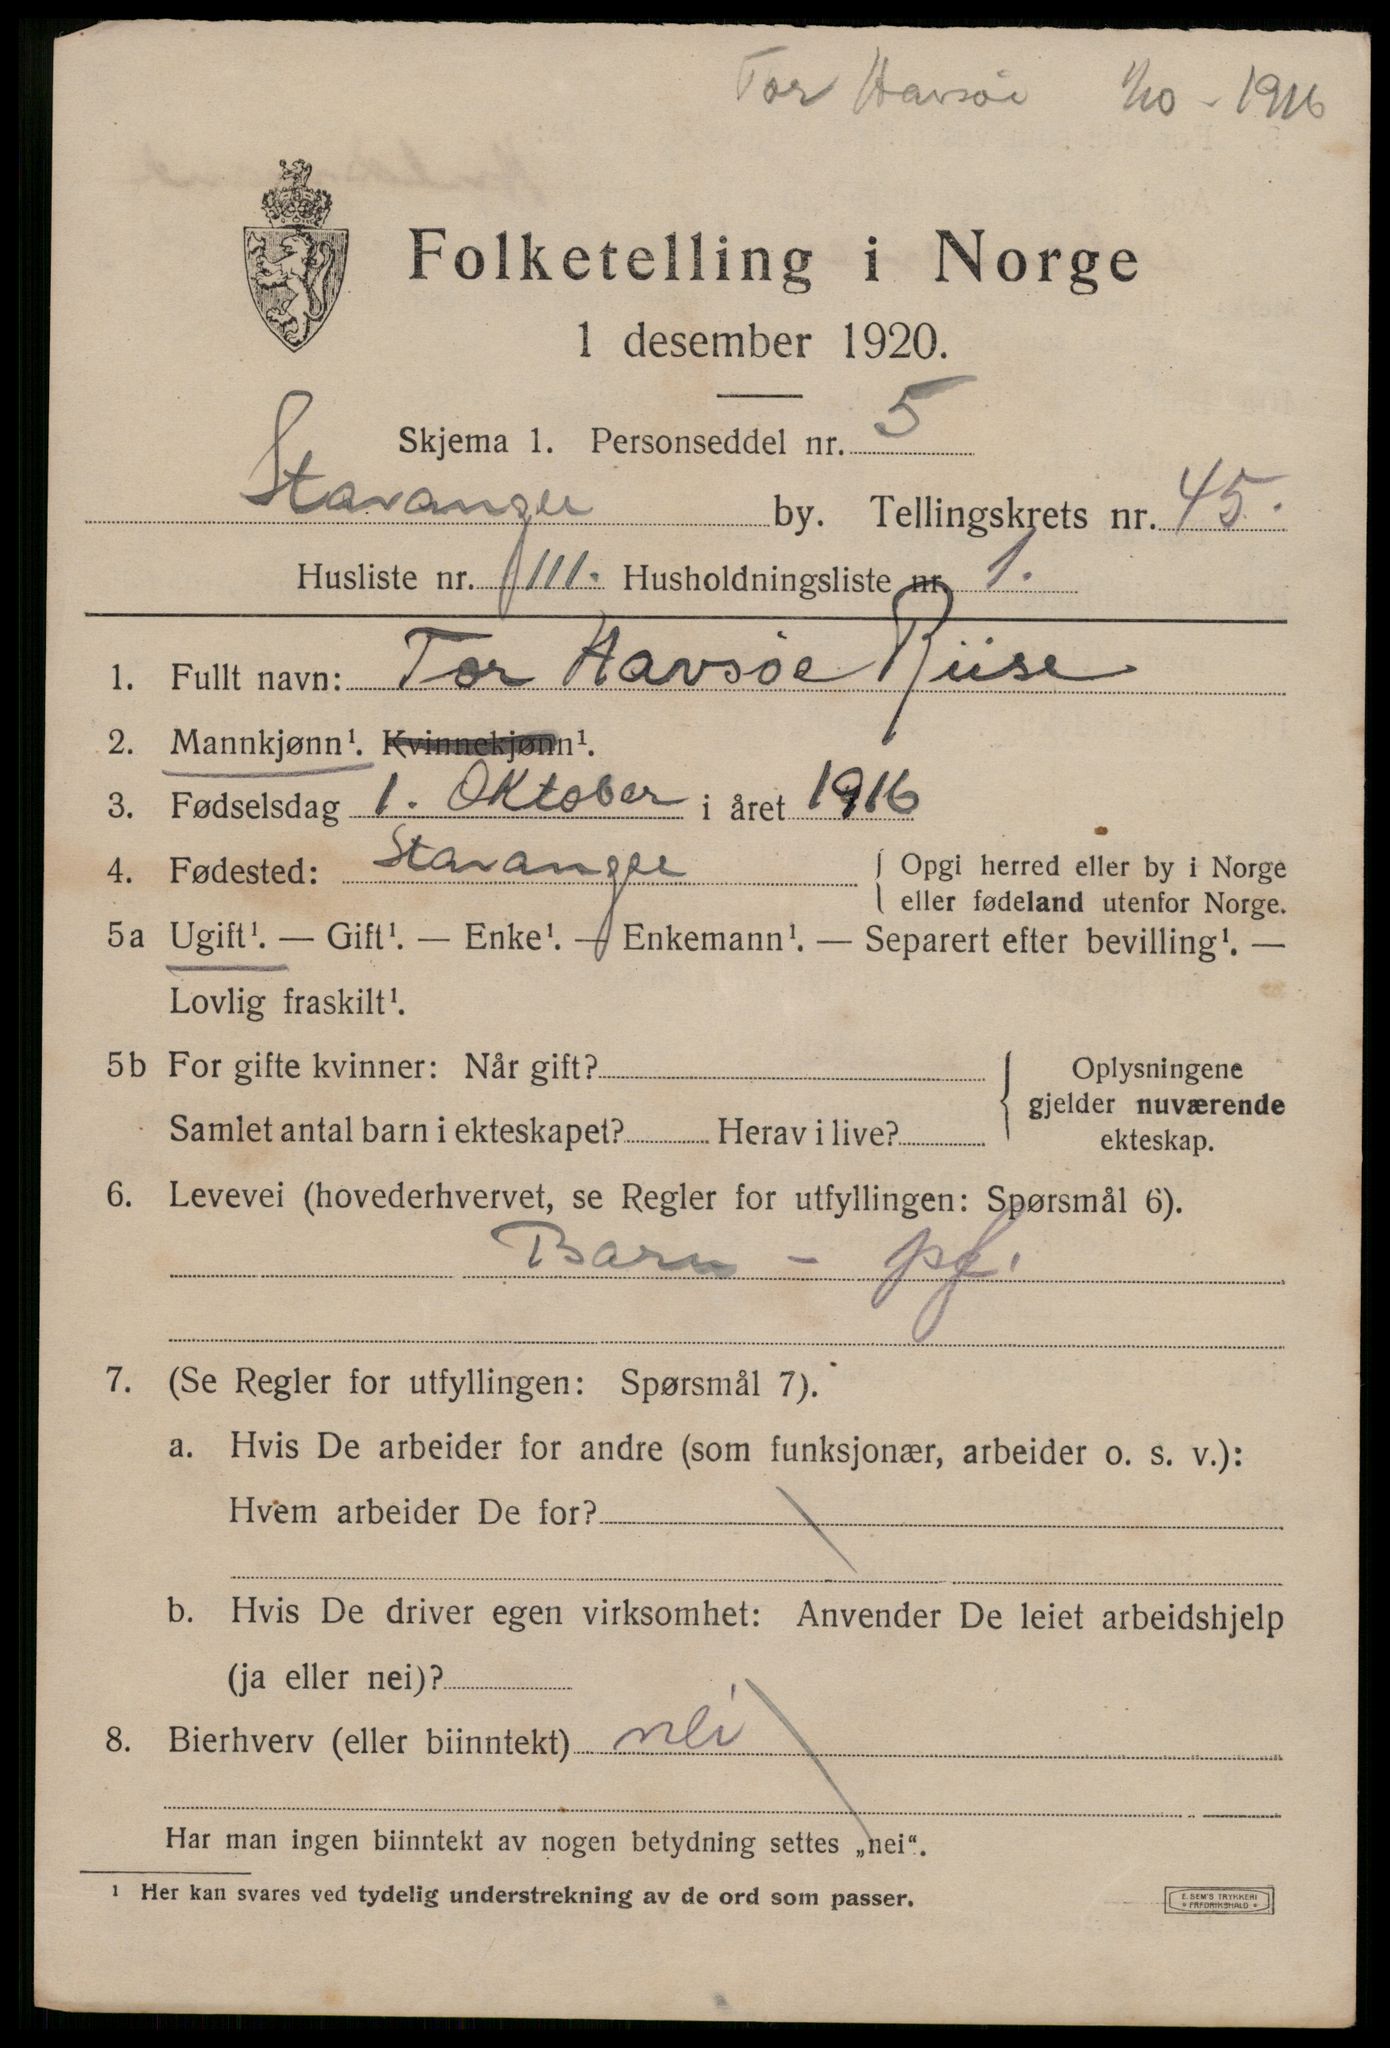 Tor Havsøe 1/10 - 1916
Folketelling i Norge
1 desember 1920.
Skjema 1. Personseddel nr. 5
Stavanger by. Tellingskrets nr. 45.
Husliste nr. 111. Husholdningsliste nr. 1.
1. Fullt navn: Tor Havsøe Riise
2. Mannkjønn¹. Kvinnekjønn¹.
3. Fødselsdag 1. Oktober i året 1916
4. Fødested: Stavanger { Opgi herred eller by i Norge
eller fødeland utenfor Norge.
5a Ugift¹. — Gift¹. — Enke¹. — Enkemann¹. — Separert efter bevilling¹. —
Lovlig fraskilt¹.
5b For gifte kvinner: Når gift? { Oplysningene
gjelder nuværende
Samlet antal barn i ekteskapet? Herav i live?
ekteskap.
6. Levevei (hovederhvervet, se Regler for utfyllingen: Spørsmål 6).
Barn - pf.
7. (Se Regler for utfyllingen: Spørsmål 7).
a. Hvis De arbeider for andre (som funksjonær, arbeider o. s. v.):
Hvem arbeider De for?
b. Hvis De driver egen virksomhet: Anvender De leiet arbeidshjelp
(ja eller nei)?
8. Bierhverv (eller biinntekt) nei
Har man ingen biinntekt av nogen betydning settes „nei“.
¹ Her kan svares ved tydelig understrekning av de ord som passer.
E. SEM'S TRYKKERI
FREDRIKSHALD